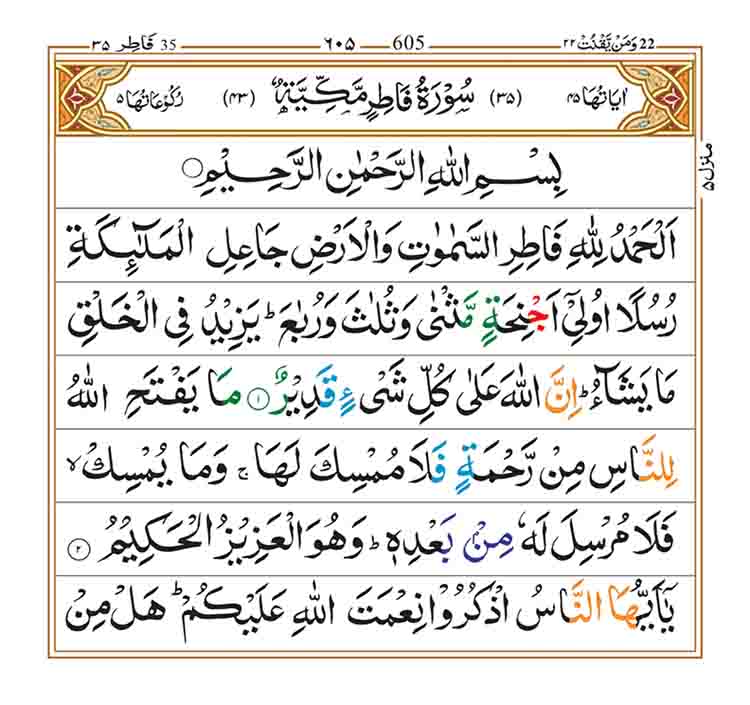 22 وَمَنْ يَّقْنُتْ ٢٢ 605 ٦٠٥ 35 فَاطِر ٣٥
اٰيَاتُهَا ٤٥ (٣٥) سُوْرَةُ فَاطِرٍ مَّكِّيَّةٌ (٤٣) رُكُوْعَاتُهَا ٥
منزل ٥
بِسْمِ اللهِ الرَّحْمٰنِ الرَّحِيْمِ
اَلْحَمْدُ لِلّٰهِ فَاطِرِ السَّمٰوٰتِ وَالْاَرْضِ جَاعِلِ الْمَلٰٓئِكَةِ
رُسُلًا اُولِيْٓ اَجْنِحَةٍ مَّثْنٰى وَثُلٰثَ وَرُبٰعَ ؕ يَزِيْدُ فِى الْخَلْقِ
مَا يَشَآءُ ؕ اِنَّ اللهَ عَلٰى كُلِّ شَىْءٍ قَدِيْرٌ ١ مَا يَفْتَحِ اللهُ
لِلنَّاسِ مِنْ رَّحْمَةٍ فَلَا مُمْسِكَ لَهَا ۚ وَمَا يُمْسِكْ ۙ
فَلَا مُرْسِلَ لَهٗ مِنْۢ بَعْدِهٖ ؕ وَهُوَ الْعَزِيْزُ الْحَكِيْمُ ٢
يٰٓاَيُّهَا النَّاسُ اذْكُرُوْا نِعْمَتَ اللهِ عَلَيْكُمْ ؕ هَلْ مِنْ